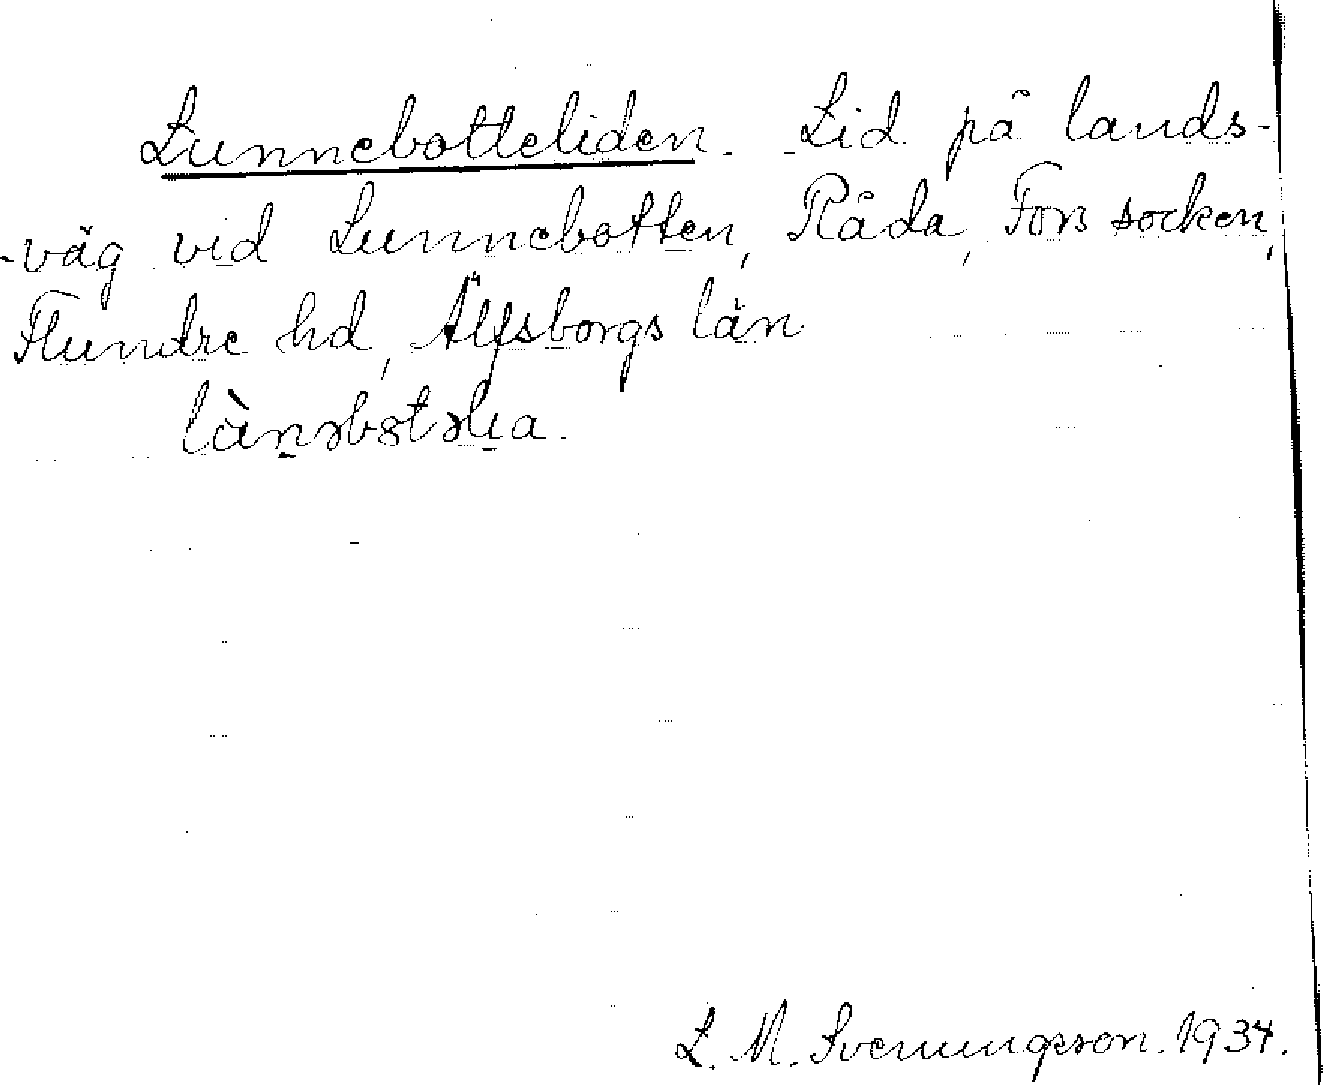 Lunnebotteliden. Lid på lands-
-väg vid Lunnebotten, Råda, Fors socken,
Flundre hd, Älfsborgs län
lànəbɔtəlıa.
L. M. Svenungsson. 1934.